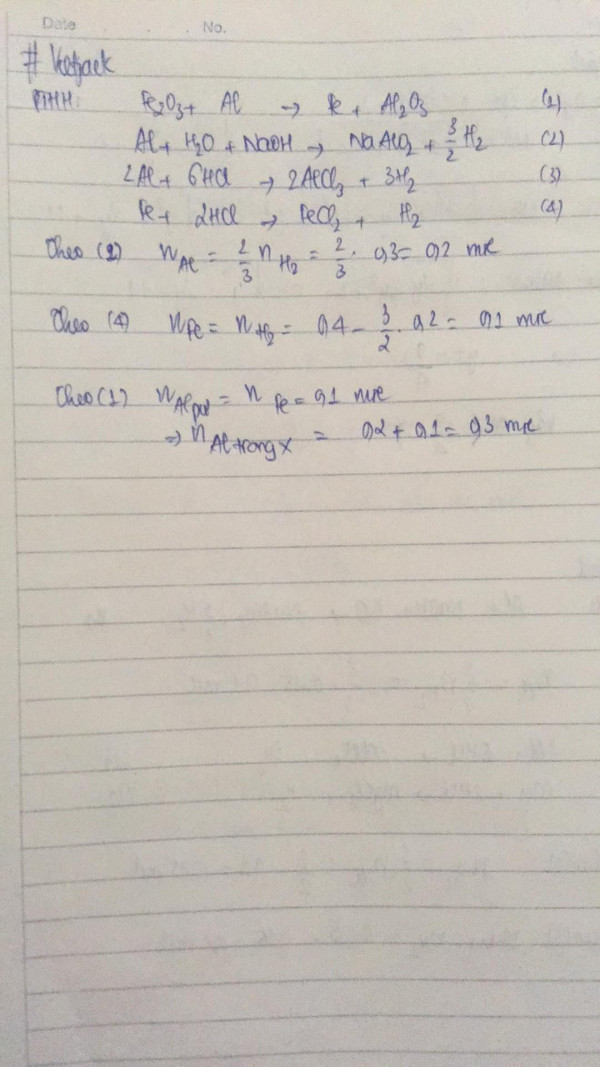 Date No.
#
PTHH: Fe₂O₃ + Al → Fe + Al₂O₃ (1)
Al + H₂O + NaOH → NaAlO₂ + 3/2 H₂ (2)
2Al + 6HCl → 2AlCl₃ + 3H₂ (3)
Fe + 2HCl → FeCl₂ + H₂ (4)
Theo (2) n Al = 2/3 n H₂ = 2/3 . 0,3 = 0,2 mol
Theo (4) n Fe = n H₂ = 0,4 - 3/2 . 0,2 = 0,1 mol
Theo (1) n Al pư = n Fe = 0,1 mol
⇒ n Al trong X = 0,2 + 0,1 = 0,3 mol